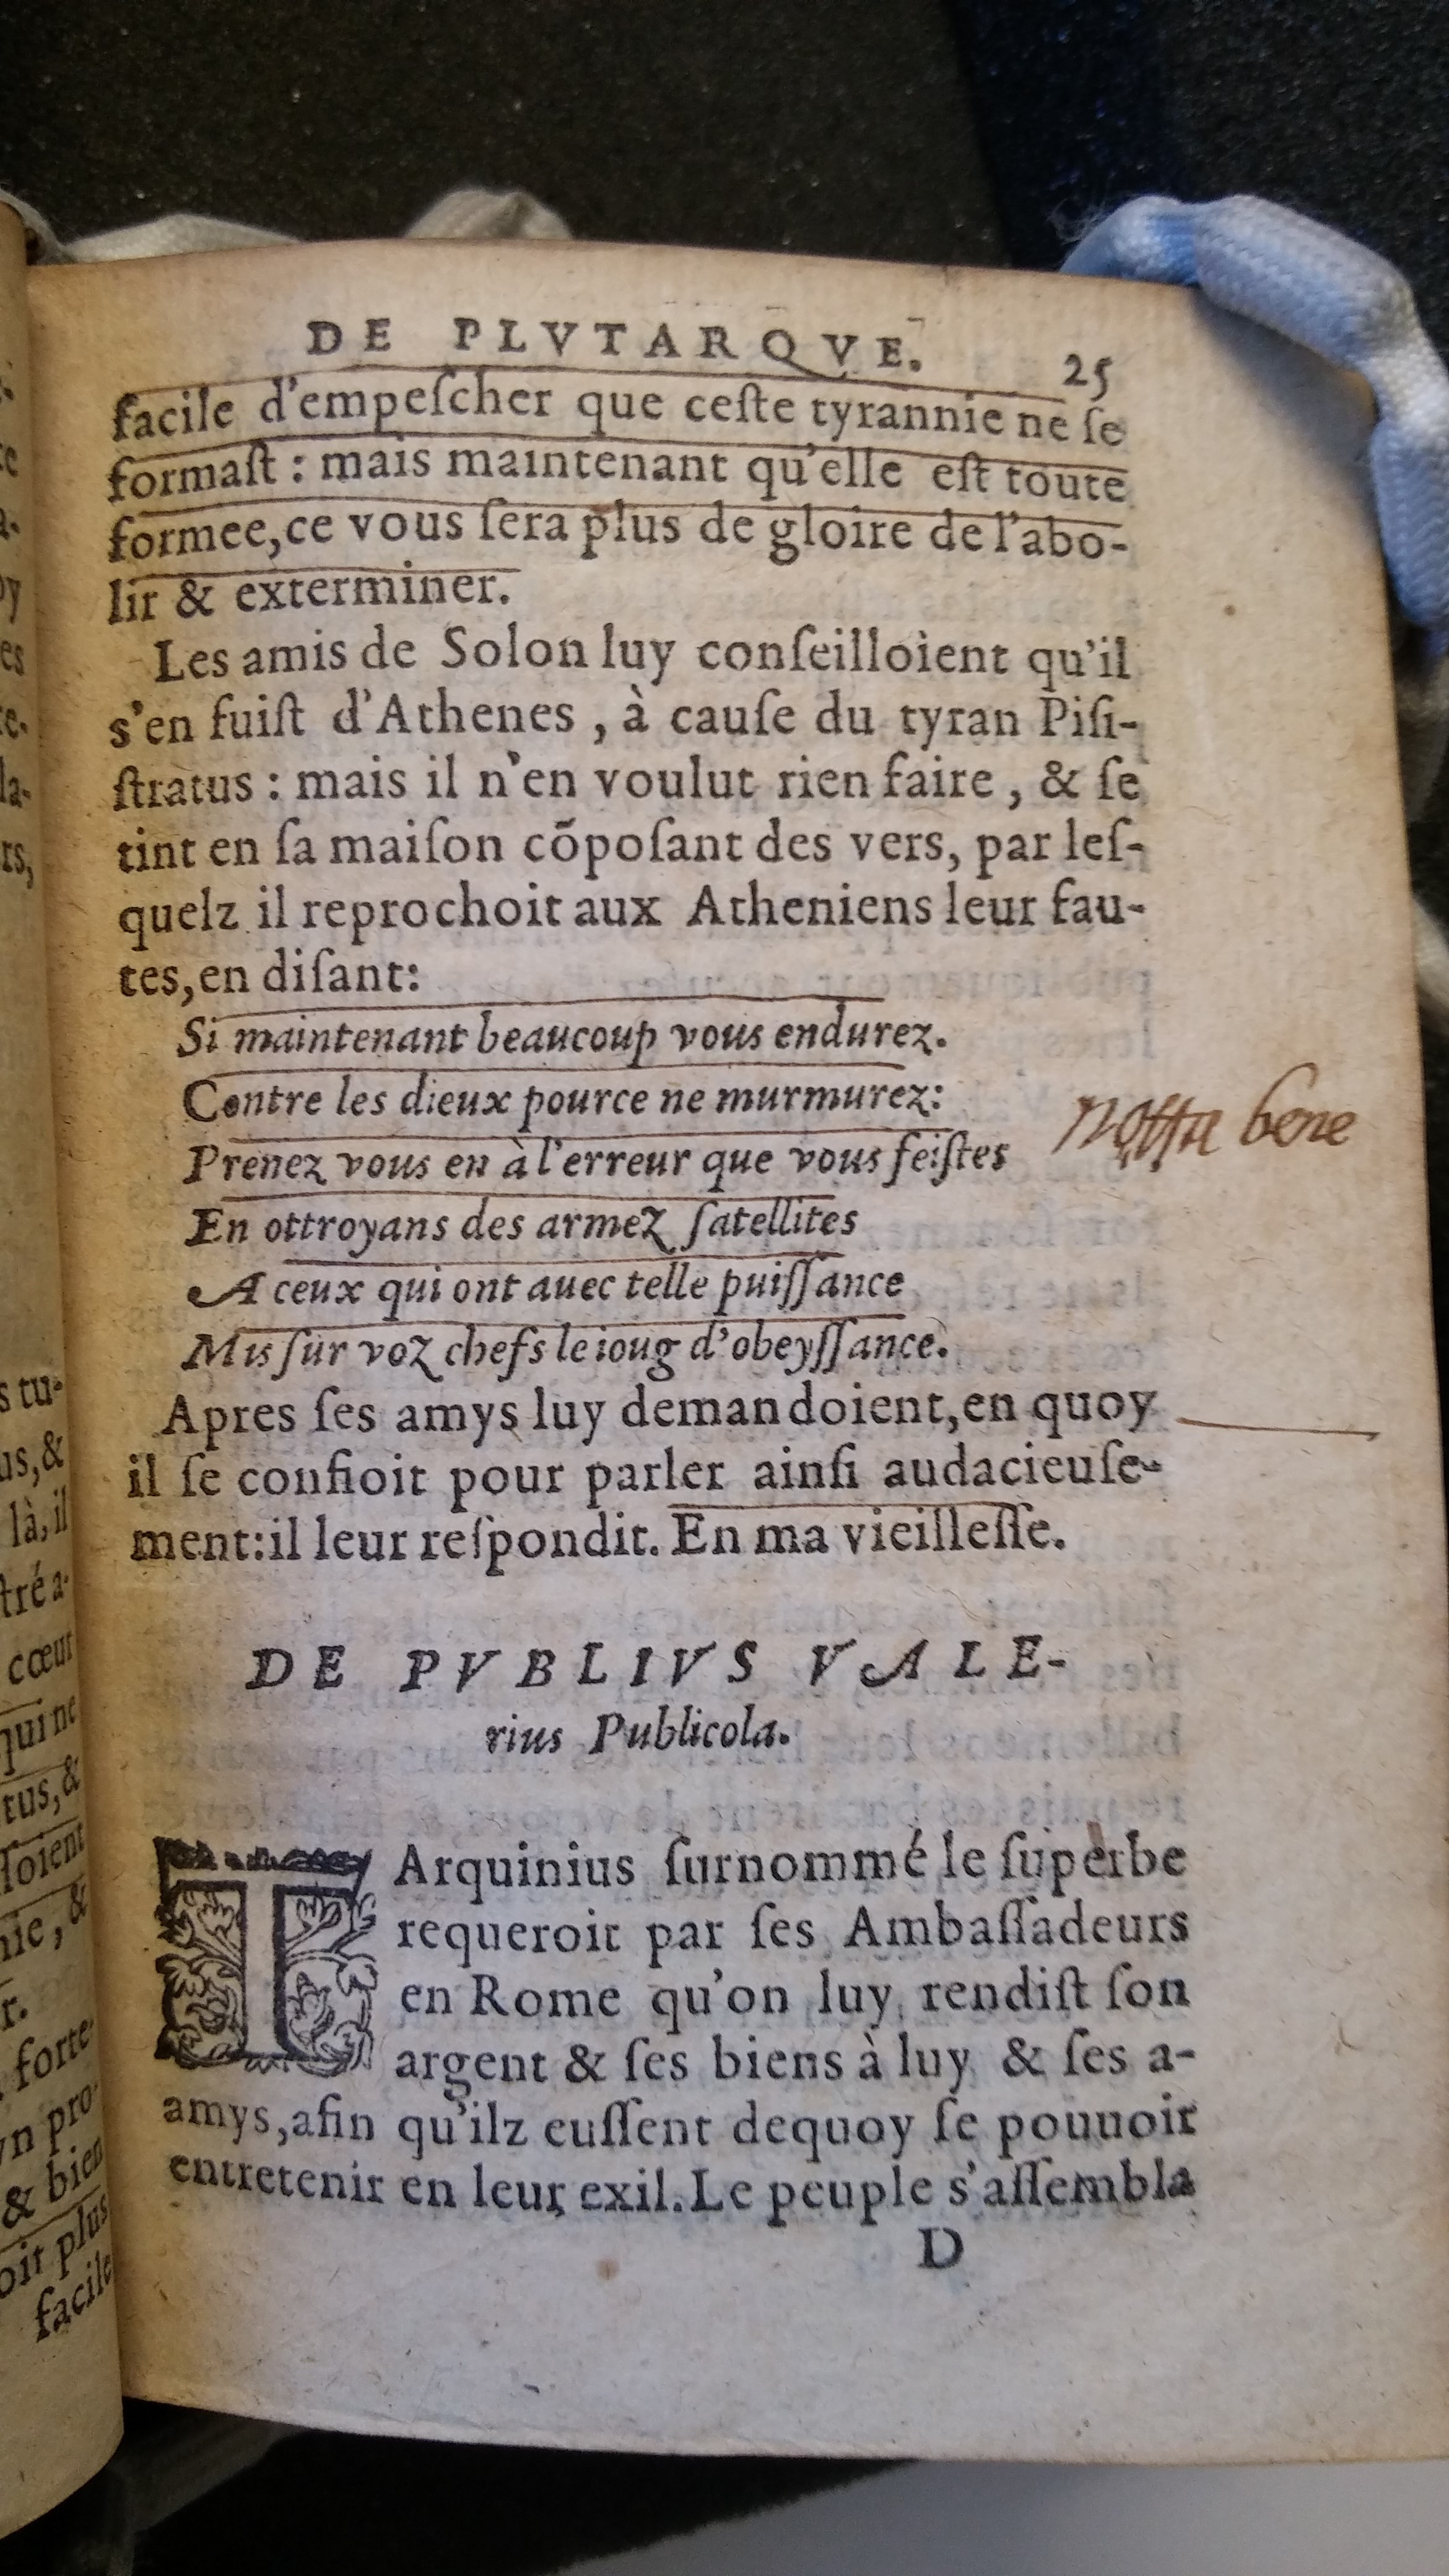 DE PLVTARQVE. 25
facile d'empeſcher que ceſte tyrannie ne ſe
formaſt : mais maintenant qu'elle eſt toute
formee, ce vous ſera plus de gloire de l'abo-
lir & exterminer.
Les amis de Solon luy conſeilloient qu'il
s'en fuiſt d'Athenes , à cauſe du tyran Piſi-
ſtratus : mais il n'en voulut rien faire , & ſe
tint en ſa maiſon cõpoſant des vers, par leſ-
quelz il reprochoit aux Atheniens leur fau-
tes, en diſant:
Si maintenant beaucoup vous endurez.
Contre les dieux pource ne murmurez:
Prenez vous en à l'erreur que vous feiſtes
notta bene
En ottroyans des armez ſatellites
A ceux qui ont auec telle puiſſance
Mis ſur voz chefs le ioug d'obeyſſance.
Apres ſes amys luy demandoient, en quoy
il ſe confioit pour parler ainſi audacieuſe-
ment: il leur reſpondit. En ma vieilleſſe.
DE PVBLIVS VALE-
rius Publicola.
TArquinius ſurnommé le ſuperbe
requeroit par ſes Ambaſſadeurs
en Rome qu'on luy rendiſt ſon
argent & ſes biens à luy & ſes a-
amys, afin qu'ilz euſſent dequoy ſe pouuoir
entretenir en leur exil. Le peuple s'aſſembla
D
s tu-
us, &
là, il
tré a-
cœur
qui ne
tus, &
ſoient
nie, &
r.
forte-
vn pro-
& bien
oit plus
facile